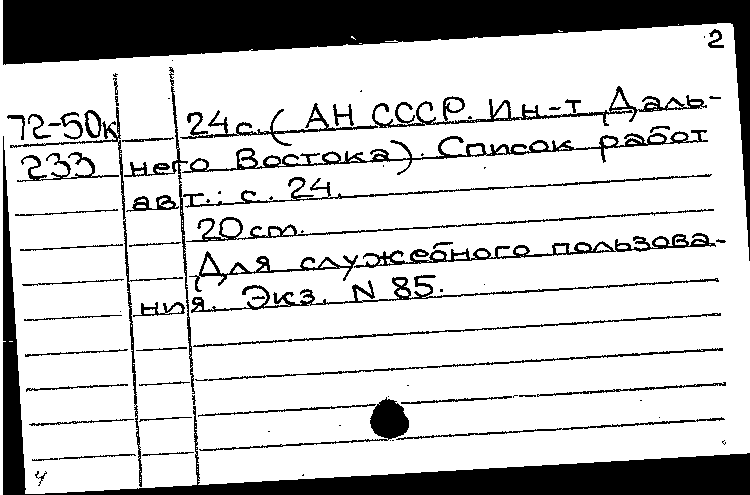 2
72-50к 24с. (АН СССР. Ин-т Даль-
233 него Востока). Список работ
авт.: с. 24.
20 см.
Для служебного пользова-
ния. Экз. N 85.